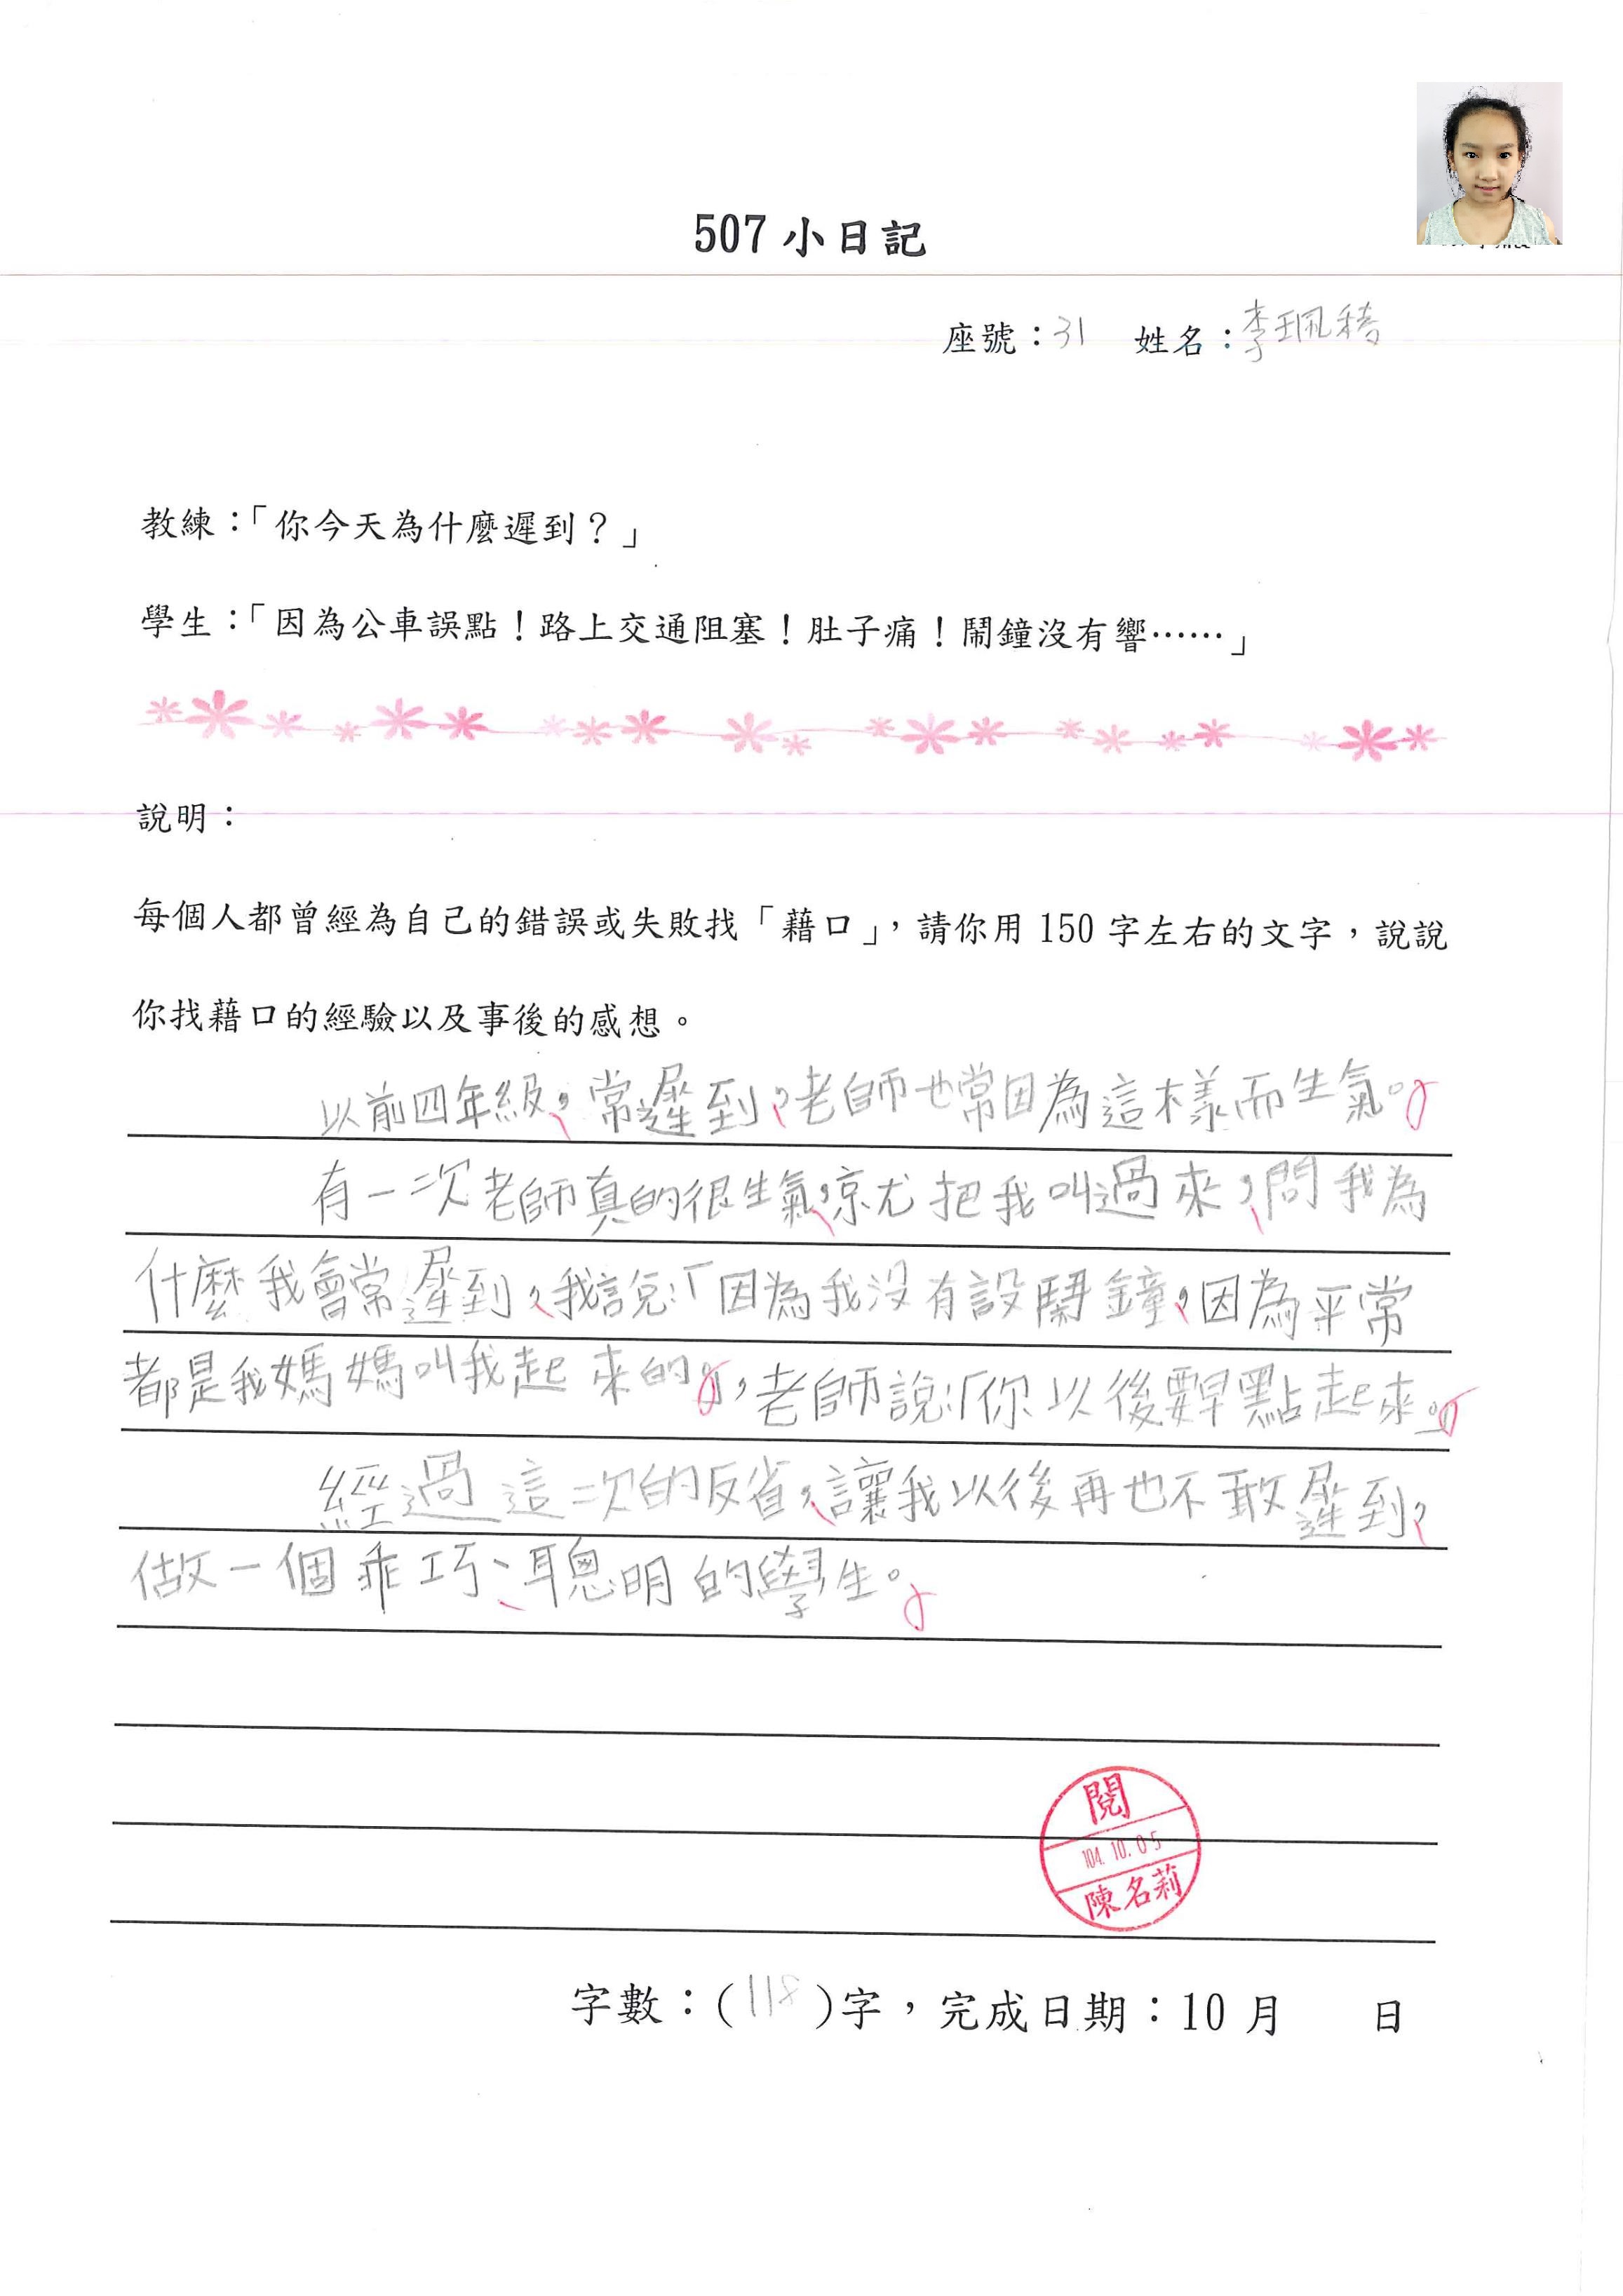 507 小日記
座號：31 姓名：李珮
教練：「你今天為什麼遲到？」
學生：「因為公車誤點！路上交通阻塞！肚子痛！鬧鐘沒有響……」
說明：
每個人都曾經為自己的錯誤或失敗找「藉口」，請你用 150 字左右的文字，說說
你找藉口的經驗以及事後的感想。
以前四年級，常遲到，老師也常因為這樣而生氣。
有一次老師真的很生氣，就把我叫過來，問我為
什麼我會常遲到，我說：「因為我沒有設鬧鐘，因為平常
都是我媽媽叫我起來的。」，老師說：「你以後要早點起來。」
經過這一次的反省，讓我以後再也不敢遲到，
做一個乖巧、聰明的學生。
閱
104.10.05
陳名莉
字數：(118)字，完成日期：10 月 日